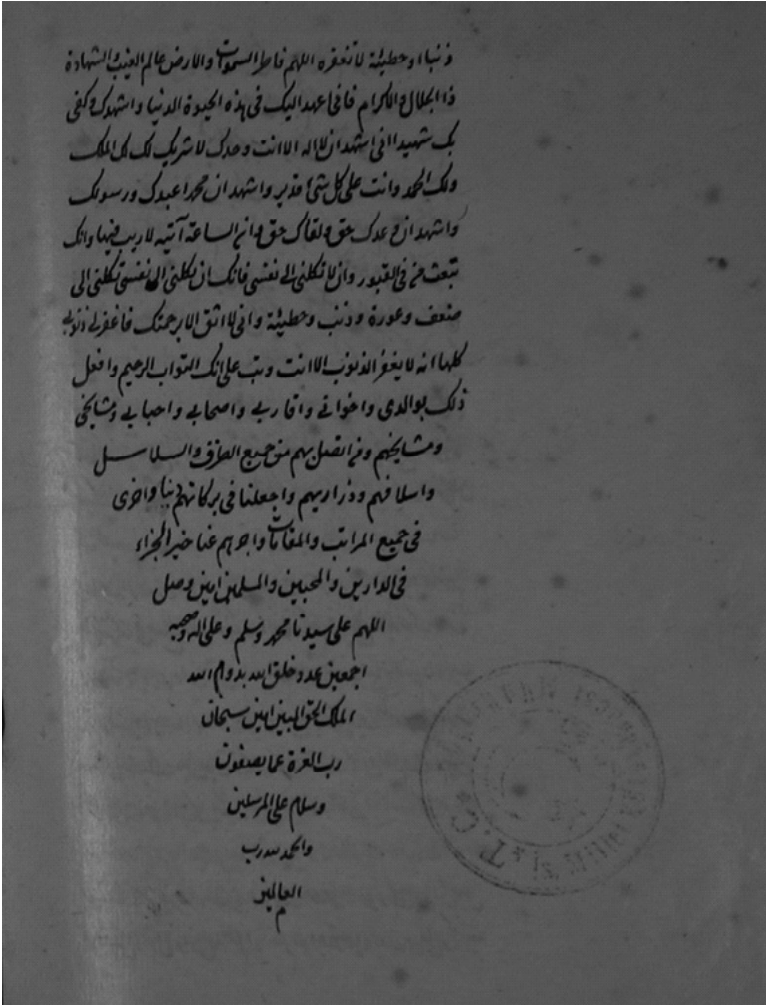 ذنبا او خطيئة لا تغفره اللهم فاطر السموات والارض عالم الغيب والشهادة
ذا الجلال والاكرام فانى اعهد اليك فى هذه الحيوة الدنيا واشهدك وكفى
بك شهيدا انى اشهد ان لا اله الا انت وحدك لا شريك لك لك الملك
ولك الحمد وانت على كل شئ قدير واشهد ان محمدا عبدك ورسولك
واشهد ان وعدك حق ولقاك حق وان الساعة آتيه لا ريب فيها وانك
تبعث من فى القبور وان لا تكلنى الى نفسى فانك ان تكلنى الى نفسى تكلنى الى
ضعف وعورة وذنب وخطيئة وانى لا اثق الا برحمتك فاغفر لى ذنوبى
كلها انه لا يغفر الذنوب الا انت وتب على انك التواب الرحيم وافعل
ذلك بوالدى واخوانى واقاربى واصحابى واحبابى ومشايخى
ومشايخهم ومن اتصل بهم من جميع الطرق والسلاسل
واسلافهم وذراريهم واجعلنا فى بركاتهم دنيا واخرى
فى جميع المراتب والمقامات واجزهم عنا خير الجزاء
فى الدارين والمحبين والمسلمين امين وصل
اللهم على سيدنا محمد وسلم وعلى اله وصحبه
اجمعين عدد خلق الله بدوام الله
الملك الحق المبين امين سبحان
رب العزة عما يصفون
وسلام على المرسلين
والحمد لله رب
العالمين
م